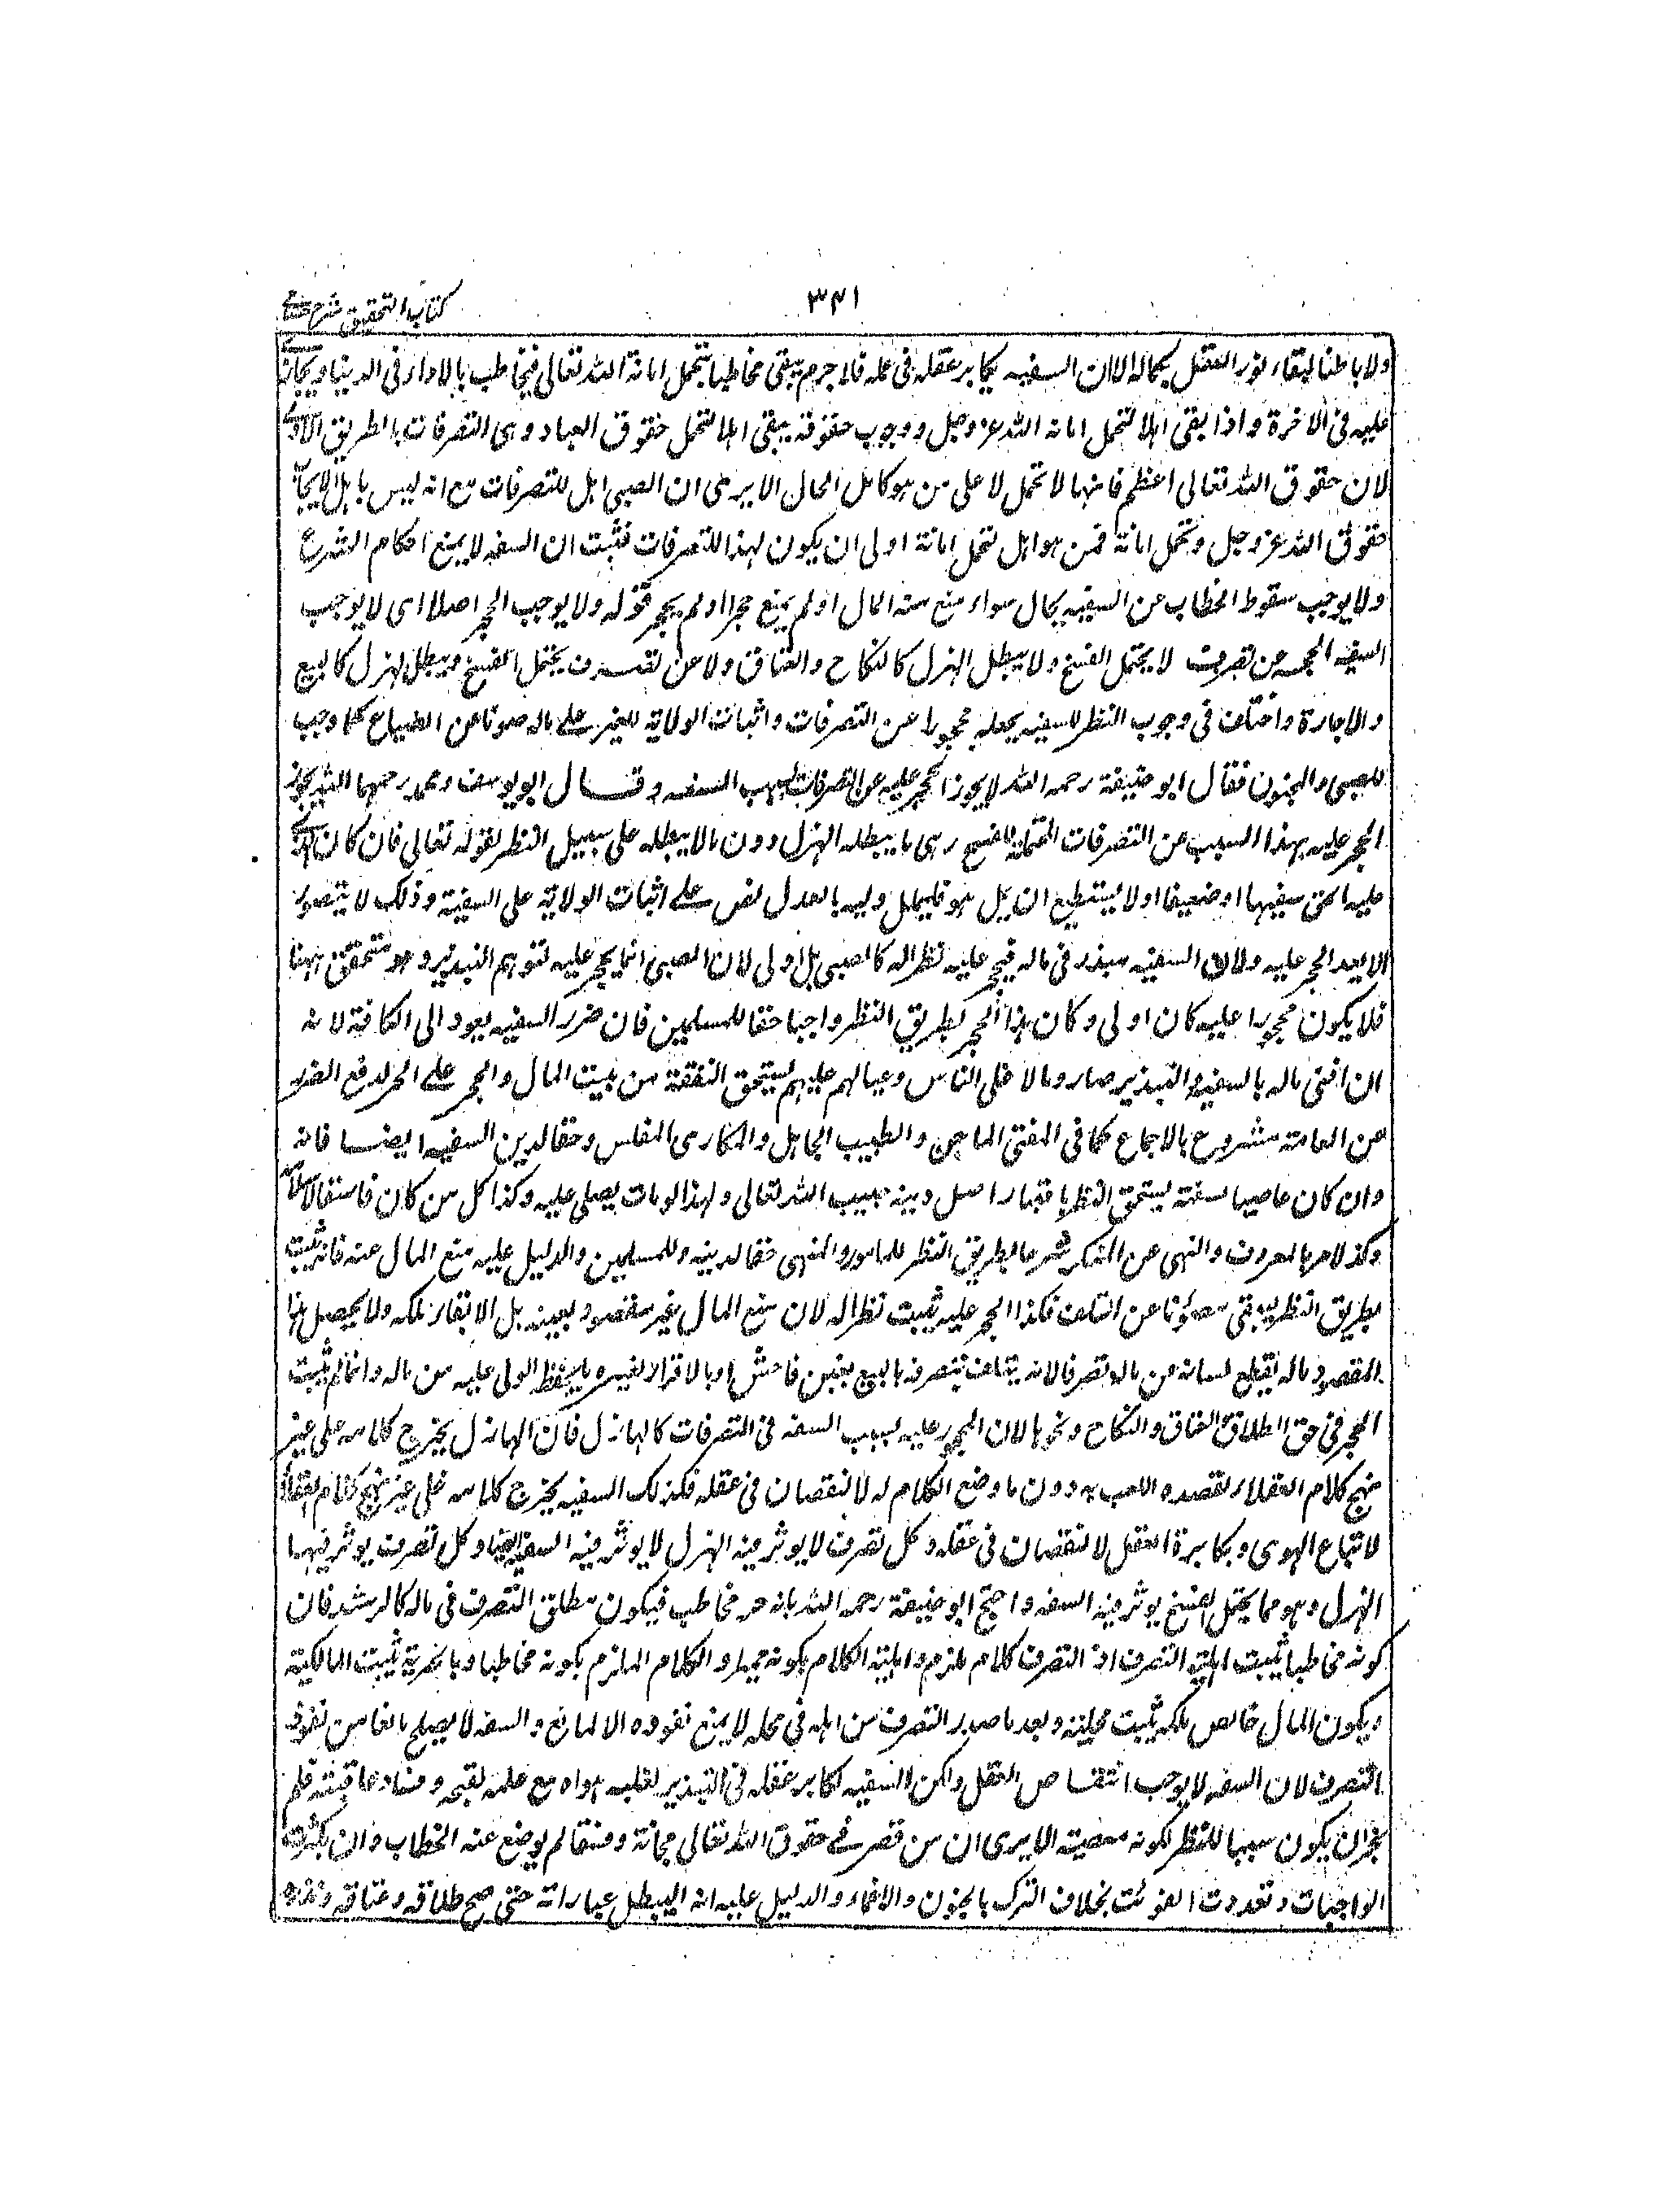 كتاب التحقيق شرح حسامى
٣٤١
ولا باطنا لبقاء نور العقل بكماله الا ان السفيه يكابر عقله فى عمله فلا جرم يبقى مخاطبا بتحمل امانة الله تعالى فيخاطب بالاداء فى الدنيا ويجازى
عليه فى الاخرة واذا بقى اهلا لتحمل امانة الله عز وجل ووجوب حقوقه يبقى اهلا لتحمل حقوق العباد وهى التصرفات بالطريق الاولى
لان حقوق الله تعالى اعظم فانها لا تحمل لا على من هو كامل الحال الا يرى ان الصبى اهل للتصرفات مع انه ليس باهل لايجاب
حقوق الله عز وجل وتحمل امانة فمن هو اهل لتحمل امانة اولى ان يكون لهذا للتصرفات فثبت ان السفه لا يمنع احكام الشرع
ولا يوجب سقوط الخطاب عن السفيه بحال سواء منع منه المال او لم يمنع حجرا اولم يحجر قوله ولا يوجب الحجر اصلا اى لا يوجب
السفه الحجر عن تصرف لا يحتمل الفسخ ولا يبطل الهزل كالنكاح والعتاق ولا عن تصرف يحتمل الفسخ ويبطل الهزل كالبيع
والاجارة واختلف فى وجوب النظر للسفيه بجعله محجورا عن التصرفات واثبات الولاية للغير على ماله صونا عن الضياع كما وجب
للصبى والمجنون فقال ابو حنيفة رحمه الله لا يجوز الحجر عليه عن التصرفات بسبب السفه وقال ابو يوسف ومحمد رحمهما الله يجوز
الحجر عليه بهذا السبب عن التصرفات المحتملة للفسخ وهى ما يبطله الهزل دون مالا يبطله على سبيل النظر لقوله تعالى فان كان الذى
عليه الحق سفيها او ضعيفا او لا يستطيع ان يمل هو فليملل وليه بالعدل نص على اثبات الولاية على السفيه وذلك لا يتصور
الا بعد الحجر عليه ولان السفيه مبذر فى ماله فيحجر عليه نظرا له كالصبى بل اولى لان الصبى انما يحجر عليه لتوهم التبذير وهو متحقق ههنا
فلا يكون محجورا عليه كان اولى وكان هذا الحجر بطريق النظر واجبا حقا للمسلمين فان ضرر السفيه يعود الى الكافة لانه
ان افنى ماله بالسفه والتبذير صار وبالا على الناس وعيالهم عليهم يستحق النفقة من بيت المال والحجر على الحر لدفع الضرر
عن العامة مشروع بالاجماع كما فى المفتى الماجن والطبيب الجاهل والمكارى المفلس وحقا لدين السفيه ايضا فانه
وان كان عاصيا لسفهه يستحق النظر باعتبار اصل دينه حبيب الله تعالى ولهذا لو مات يصلى عليه وكذا كل من كان فاسقا
وكذ لامر بالمعروف والنهى عن المنكر شرعا بطريق النظر للمامور والمنهى حقا لدينه وللمسلمين والدليل عليه منع المال عنه فانه ثبت
بطريق النظر ليبقى مصونا عن التلف فكذا الحجر عليه يثبت نظرا له لان منع المال غير مقصود بعينه بل الابقاء ملكه ولا يحصل هذا
المقصود ماله يقطع لسانه عن ماله تصرفا لانه يتلف بتصرفه بالبيع بغبن فاحش او بالاقرار لغيره ما يحفظ الولى عليه من ماله وانما لم يثبت
الحجر فى حق الطلاق والعتاق والنكاح ونحوها لان المحجور عليه بسبب السفه فى التصرفات كالهازل فان الهازل يخرج كلامه على غير
نهج كلام العقلاء لقصده اللعب به دون ما وضع الكلام له لا لنقصان فى عقله فكذلك السفيه يخرج كلامه على غير نهج كلام العقلاء
لاتباع الهوى ومكابرة العقل لا لنقصان فى عقله وكل تصرف لا يوثر فيه الهزل لا يوثر فيه السفه ايضا وكل تصرف يوثر فيهما
الهزل وهو مما يحتمل الفسخ يوثر فيه السفه واحتج ابو حنيفة رحمه الله بانه حر مخاطب فيكون مطلق التصرف فى ماله كالرشد فان
كونه مخاطبا يثبت اهلية التصرف اذ التصرف كلام ملزم واهلية الكلام بكونه مميزا والكلام الملزم بكونه مخاطبا وبالحرية يثبت المالكية
ويكون المال خالص ملكه يثبت محليته وبعد ما صدر التصرف من اهله فى محله لا يمنع نفوذه الا لمانع والسفه لا يصلح مانعا من نفوذ
التصرف لان السفه لا يوجب انتقاص العقل ولكن السفيه يكابر عقله فى التبذير لغلبة هواه مع علمه بقبحه وفساد عاقبته فلم
يجز ان يكون سببا للنظر لكونه معصية الا يرى ان من قصر فى حقوق الله تعالى مجانة وفسقا لم يوضع عنه الخطاب وان كثرت
الواجبات وتعددت الفوائت بخلاف الترك بالجنون والاغماء والدليل عليه انه لا يبطل عباراته حتى صح طلاقه وعتاقه ونذره